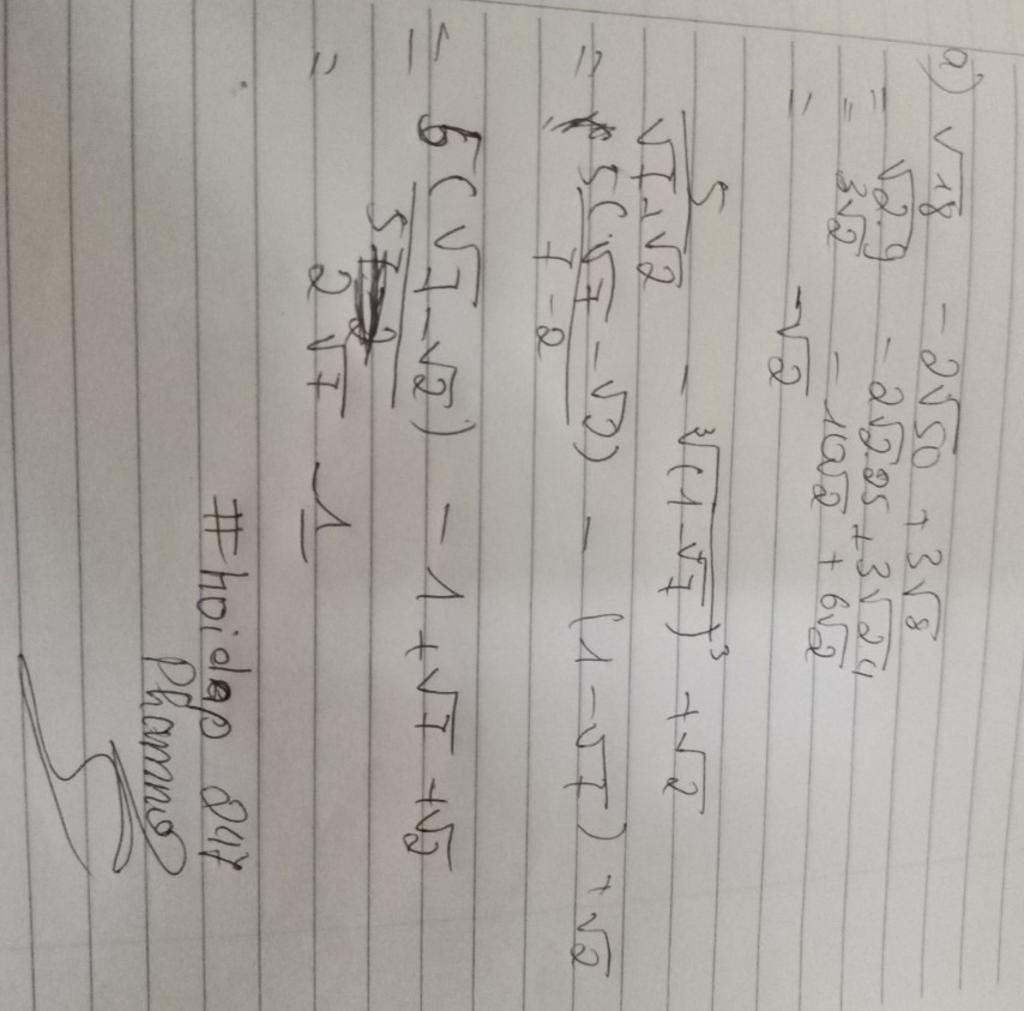 a) √18 - 2√50 + 3√8
= √2.9 - 2√2.25 + 3√2.4
= 3√2 - 10√2 + 6√2
= -√2
5/(√7+√2) - ∛(1-√7)³ + √2
= 5(√7-√2)/(7-2) - (1-√7) + √2
= 5(√7-√2)/5 - 1 + √7 + √2
= 2√7 - 1
#hoidap 247